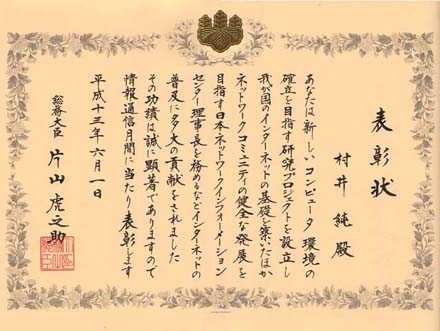 表彰状
村井純殿
あなたは新しいコンピュータ環境の
確立を目指す研究プロジェクトを設立し
我が国のインターネットの基礎を築いたほか
ネットワークコミュニティの健全な発展を
目指す日本ネットワークインフォメーション
センター理事長を務めるなどインターネットの
普及に多大の貢献をされました
その功績は誠に顕著でありますので
情報通信月間に当たり表彰します
平成十三年六月一日
総務大臣 片山虎之助